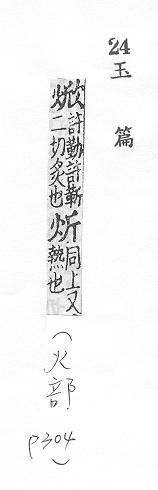 24 玉篇
焮許勤許靳二切炙也炘同上又熱也
(火部 P304)